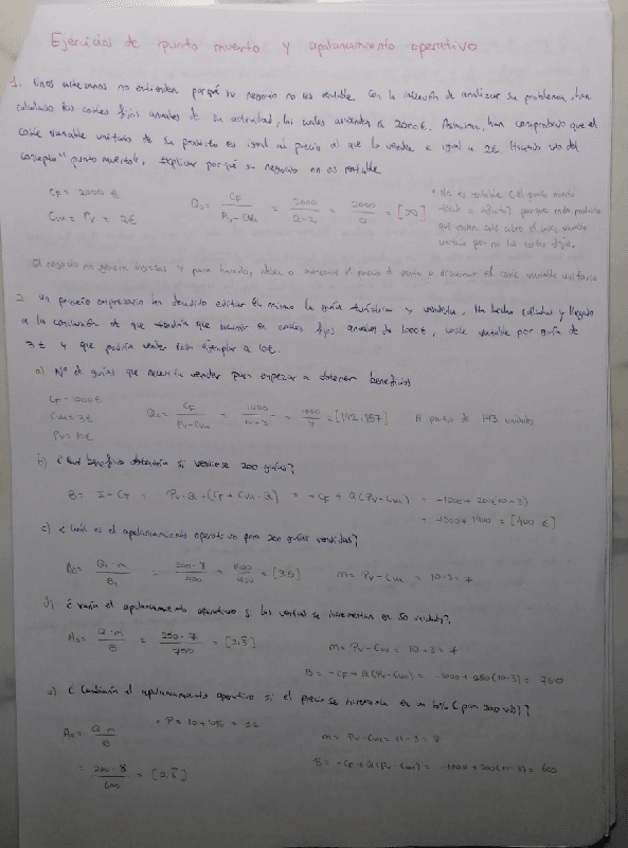 Ejercicios de punto muerto y apalancamiento operativo
1. Unos artesanos no entienden por qué su negocio no es rentable. Con la intención de analizar su problema, han
calculado los costes fijos anuales de su actividad, los cuales ascienden a 2000€. Asimismo, han comprobado que el
coste variable unitario de su producto es igual al precio al que lo vende e igual a 2€. Haciendo uso del
concepto "punto muerto", explicar por qué su negocio no es rentable.
CF = 2000 €
Cvu = Pv = 2€
Q0 = CF / Pv - Cvu = 2000 / 2-2 = 2000 / 0 = [∞]
* No es rentable (el punto muerto
tiende a infinito) porque cada producto
que vende solo cubre el coste variable
unitario pero no los costes fijos.
El negocio no genera ingresos y para hacerlo, debe o aumentar el precio de venta o disminuir el coste variable unitario
2. Un pequeño empresario ha decidido editar él mismo la guía turística y venderla. Ha hecho cálculos y llegado
a la conclusión de que tendría que incurrir en costes fijos anuales de 1000€, coste variable por guía de
3€ y que podría vender cada ejemplar a 10€.
a) Nº de guías que necesita vender para empezar a obtener beneficios
CF = 1000€
Cvu = 3€
Pv = 10€
Q0 = CF / Pv - Cvu = 1000 / 10-3 = 1000 / 7 = [142,857] A partir de 143 unidades
b) ¿Qué beneficio obtendría si vendiese 200 guías?
B = I - CT = Pv·Q - (CF + Cvu·Q) = -CF + Q(Pv - Cvu) = -1000 + 200(10-3)
= -1000 + 1400 = [400 €]
c) ¿Cuál es el apalancamiento operativo para 200 guías vendidas?
A0 = Q1·m / B1 = 200·7 / 400 = 1400 / 400 = [3,5] m = Pv - Cvu = 10-3 = 7
d) ¿Varía el apalancamiento operativo si las ventas se incrementan en 50 unidades?
A0 = Q·m / B = 250·7 / 750 = [2,3] m = Pv - Cvu = 10-3 = 7
B = -CF + Q(Pv - Cvu) = -1000 + 250(10-3) = 750
e) ¿Cambiaría el apalancamiento operativo si el precio se incrementa en un 10% (para 200 uds)?
A0 = Q·m / B • P = 10 + 10% = 11 m = Pv - Cvu = 11-3 = 8
= 200·8 / 600 = [2,6] B = -CF + Q(Pv - Cvu) = -1000 + 200(11-3) = 600